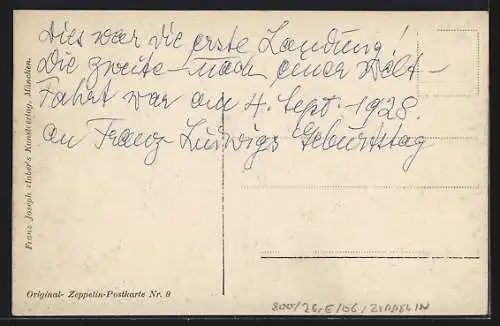 Dies war die erste Landung!
Die zweite nach einer Welt-
Fahrt war am 4. Sept. 1928.
an Franz Ludwigs Geburtstag
Franz Joseph Huber's Kunstverlag, München.
Original- Zeppelin-Postkarte Nr. 9
800/26,E/06/ZEPPELIN